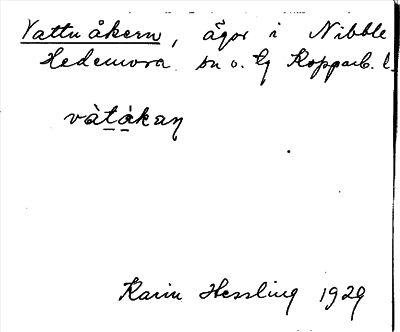 Vattuåkern, ägor i Nibble
Hedemora sn o. lg Kopparb. l.
vàt̲á̲kaŋ
Karin Hessling 1929